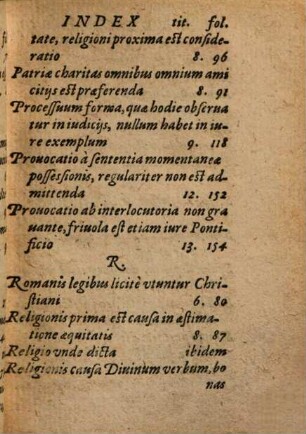 INDEX tit. fol.
tate, religioni proxima est conside-
ratio 8. 96
Patriæ charitas omnibus omnium ami
citys est præferenda 8. 91
Processuum forma, quæ hodie obserua
tur in iudicijs, nullum habet in iu-
re exemplum 9. 118
Prouocatio à sententia momentaneæ
possessionis, regulariter non est ad-
mittenda 12. 152
Prouocatio ab interlocutoria non gra
uante, friuola est etiam iure Ponti-
ficio 13. 154
R.
Romanis legibus licitè vtuntur Chri-
stiani 6. 80
Religionis prima est causa in æstima-
tione æquitatis 8. 87
Religio vnde dicta ibidem
Religionis causa Diuinum verbum, bo
nas